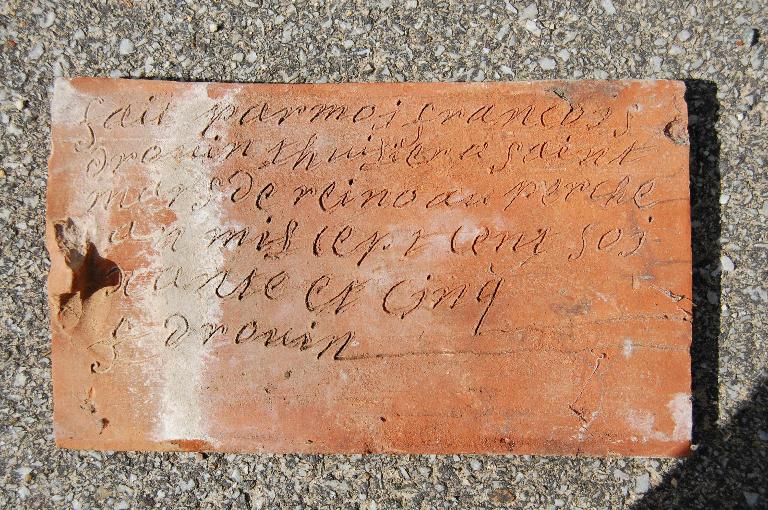 fait par moi francois
drouin thuillier a saint
mars de reino au perche
an mil cept cent soi
xante et cinq
f drouin